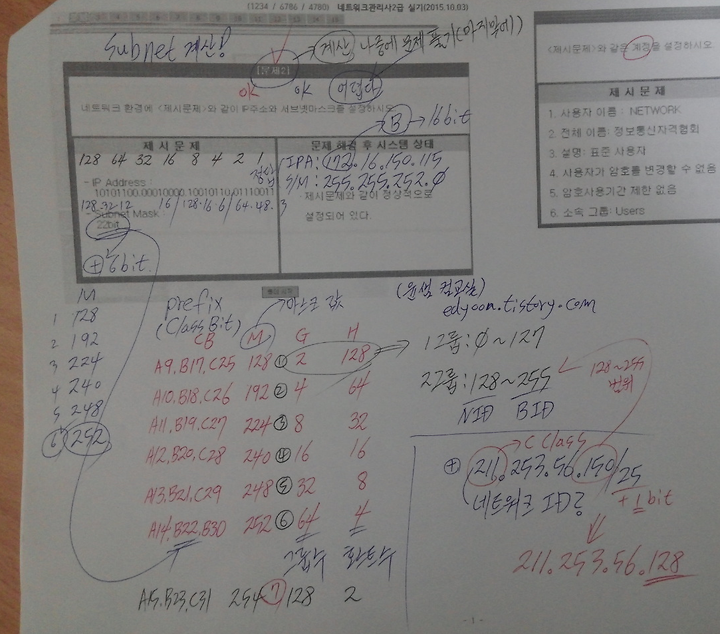 (1234 / 6786 / 4780) 네트워크관리사2급 실기(2015.10.03)
Subnet 계산!
계산, 나중에 문제 풀기(마지막에)
OK OK 어렵다
네트워크 환경에 <제시문제>와 같이 IP주소와 서브넷마스크를 설정하시오.
B → 16bit
제 시 문 제
문제 해결 후 시스템 상태
128 64 32 16 8 4 2 1
IPA : 192.16.150.115
S/M : 255.255.252.0
- IP Address :
10101100.00010000.10010110.01110011
128.32.12 16 128.16.6 64.48.3
- Subnet Mask :
22bit
제시문제와 같이 정상적으로
설정되어 있다.
+ 6bit.
<제시문제>와 같은 계정을 설정하시오
제 시 문 제
1. 사용자 이름 : NETWORK
2. 전체 이름: 정보통신자격협회
3. 설명: 표준 사용자
4. 사용자가 암호를 변경할 수 없음
5. 암호사용기간 제한 없음
6. 소속 그룹: Users
M
1 128
2 192
3 224
4 240
5 248
6 252
prefix
(Class Bit)
마스크 값
CB M G H
A9.B17.C25 128 1 2 128
A10.B18.C26 192 2 4 64
A11.B19.C27 224 3 8 32
A12.B20.C28 240 4 16 16
A13.B21.C29 248 5 32 8
A14.B22.B30 252 6 64 4
그룹수 호스트수
A15.B23.C31 254 7 128 2
(윤쌤 컴교실)
edyoon.tistory.com
1그룹: 0 ~ 127
2그룹: 128 ~ 255
NID BID
128~255
범위
C Class
+ 211.253.56.150/25
네트워크 ID?
+ 1bit
211.253.56.128
- 1 -